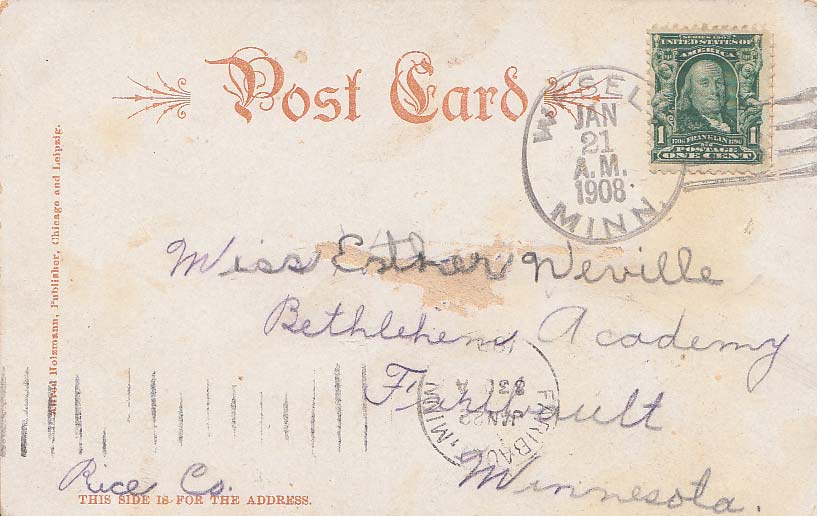 Post Card
SERIES 1902
UNITED STATES OF
AMERICA
1 1706 FRANKLIN 1790 1
POSTAGE
ONE CENT
JAN
21
A.M.
1908
MINN.
Alfred Holzmann, Publisher, Chicago and Leipzig.
Miss Esther Neville
Bethlehem Academy
Faribault
Minnesota.
Rice Co.
THIS SIDE IS FOR THE ADDRESS.
FARIBAULT, MINN
JAN 22